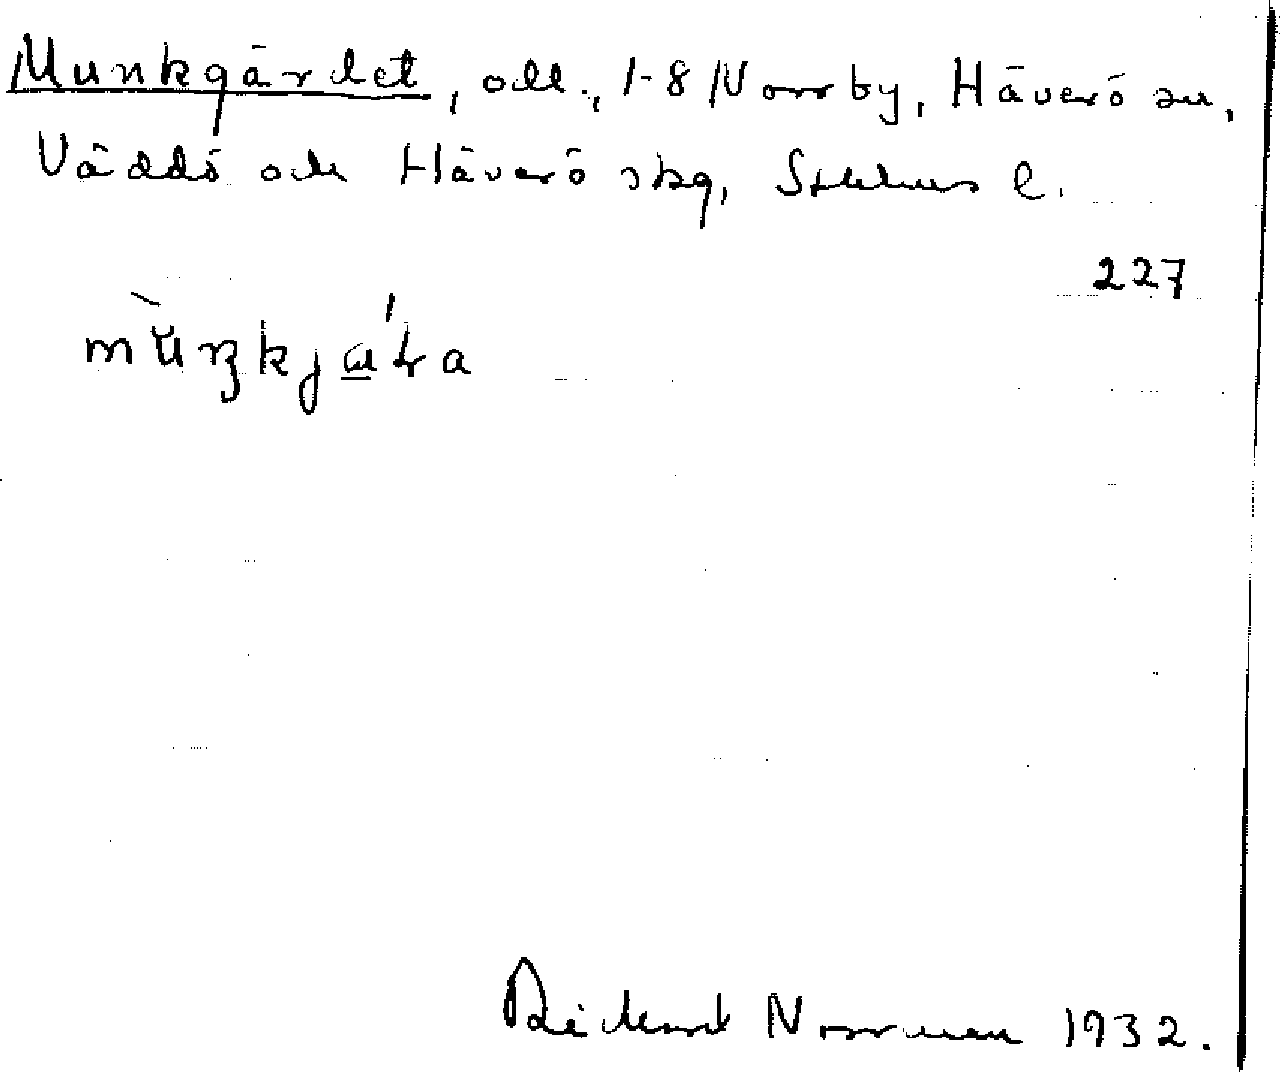 Munkgärdet, odl., 1-8 Norrby, Häverö sn,
Väddö och Häverö skg, Sthlms l.
227
Rickard Norrman 1932.